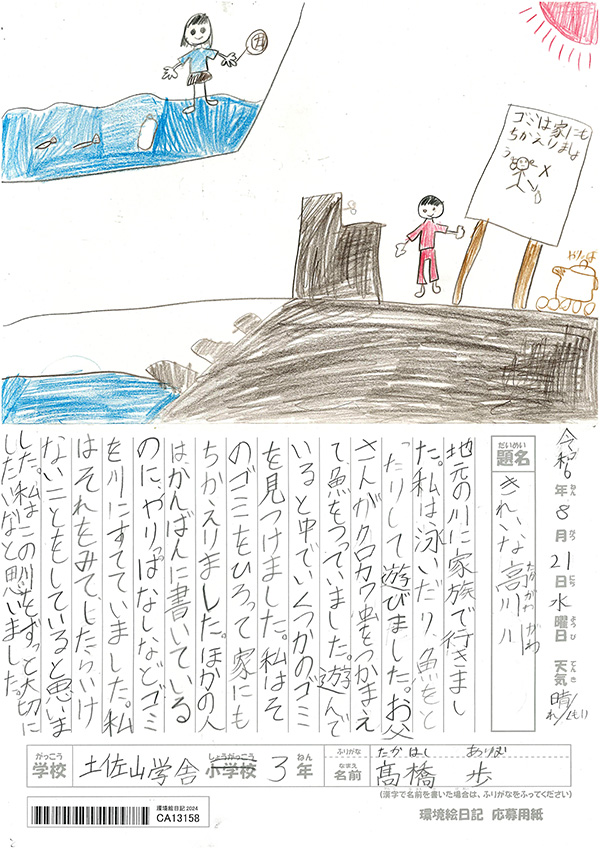 ゴミは家にも
ちかえりましょ
う
やりっぱ
令和6年8月21日水曜日 天気晴れ/くもり
ねん
がつ
にち
ようび
てんき
だいめい
題名
きれいな高川川
たかがわ がわ
地元の川に家族で行きまし
た。私は泳いだり、魚をと
ったりして遊びました。お父
さんがクロカワ虫をつかまえ
て魚をつっていました。遊んで
いると中でいくつかのゴミ
を見つけました。私はそ
のゴミをひろって家にも
ちかえりました。ほかの人
は、かんばんに書いている
のに、やりっぱなしなどゴミ
を川にすてていました。私
はそれをみて、したらいけ
ないことをしていると思いま
した。私はこの川をずっと大切に
したいなと思いました。
がっこう
学校
土佐山学舎
しょうがっこう
小学校
3年
ねん
ふりがな
たかはし ありぽ
なまえ
名前
髙橋 歩
(漢字で名前を書いた場合は、ふりがなをふってください)
環境絵日記 2024
CA13158
環境絵日記 応募用紙